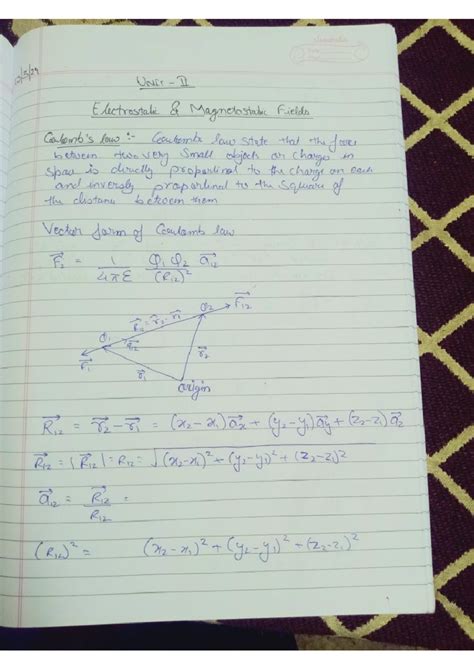 Unit - II
Electrostatic & Magnetostatic Fields
Coulomb's law :- Coulombs law state that the force
between two very small objects or charges in
space is directly proportional to the charge on each
and inversly proportional to the square of
the distance between them
Vector form of Coulomb law
F⃗₂ = 1/4πε Q₁Q₂/(R₁₂)² a⃗₁₂
Q₁ R⃗₁₂ = r⃗₂ - r⃗₁ Q₂ F⃗₁₂
F⃗₁ r⃗₁ r⃗₂
origin
R⃗₁₂ = r⃗₂ - r⃗₁ = (x₂-x₁)a⃗x + (y₂-y₁)a⃗y + (z₂-z₁)a⃗z
R⃗₁₂ = |R⃗₁₂| = R₁₂ = √(x₂-x₁)² + (y₂-y₁)² + (z₂-z₁)²
a⃗₁₂ = R⃗₁₂/R₁₂ =
(R₁₂)² = (x₂-x₁)² + (y₂-y₁)² + (z₂-z₁)²